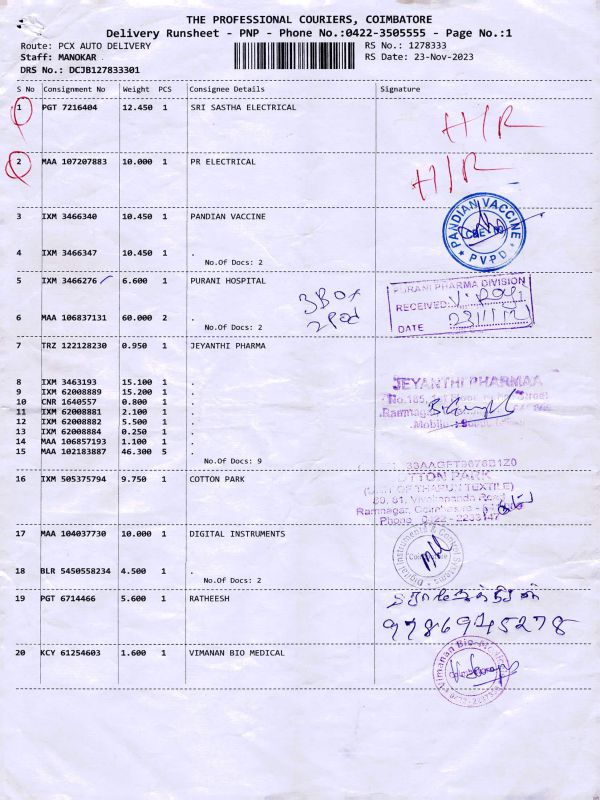 THE PROFESSIONAL COURIERS, COIMBATORE
Delivery Runsheet - PNP - Phone No.:0422-3505555 - Page No.:1
Route: PCX AUTO DELIVERY RS No.: 1278333
Staff: MANOKAR RS Date: 23-Nov-2023
DRS No.: DCJB127833301
S No Consignment No Weight PCS Consignee Details Signature
1 PGT 7216404 12.450 1 SRI SASTHA ELECTRICAL
H/R
2 MAA 107207883 10.000 1 PR ELECTRICAL
H/R
3 IXM 3466340 10.450 1 PANDIAN VACCINE
PANDIAN VACCINE
CBE
PVPD
4 IXM 3466347 10.450 1 .
No.Of Docs: 2
5 IXM 3466276 6.600 1 PURANI HOSPITAL
PURANI PHARMA DIVISION
3 Box
2 Pod
RECEIVED:
DATE
6 MAA 106837131 60.000 2 .
No.Of Docs: 2
7 TRZ 122128230 0.950 1 JEYANTHI PHARMA
8 IXM 3463193 15.100 1 .
JEYANTHI PHARMAA
9 IXM 62008889 15.200 1 .
10 CNR 1640557 0.800 1 .
11 IXM 62008881 2.100 1 .
12 IXM 62008882 5.500 1 .
13 IXM 62008884 0.250 1 .
14 MAA 106857193 1.100 1 .
15 MAA 102183887 46.300 5 .
No.Of Docs: 9
16 IXM 505375794 9.750 1 COTTON PARK
COTTON PARK
(UNIT OF THARUN TEXTILE)
Vivekananda Road
Ramnagar, Coimbatore
Phone
17 MAA 104037730 10.000 1 DIGITAL INSTRUMENTS
Digital Instruments & Control Systems
Coimbatore
18 BLR 5450558234 4.500 1 .
No.Of Docs: 2
19 PGT 6714466 5.600 1 RATHEESH
9786945278
20 KCY 61254603 1.600 1 VIMANAN BIO MEDICAL
Vimanan Bio-Medical